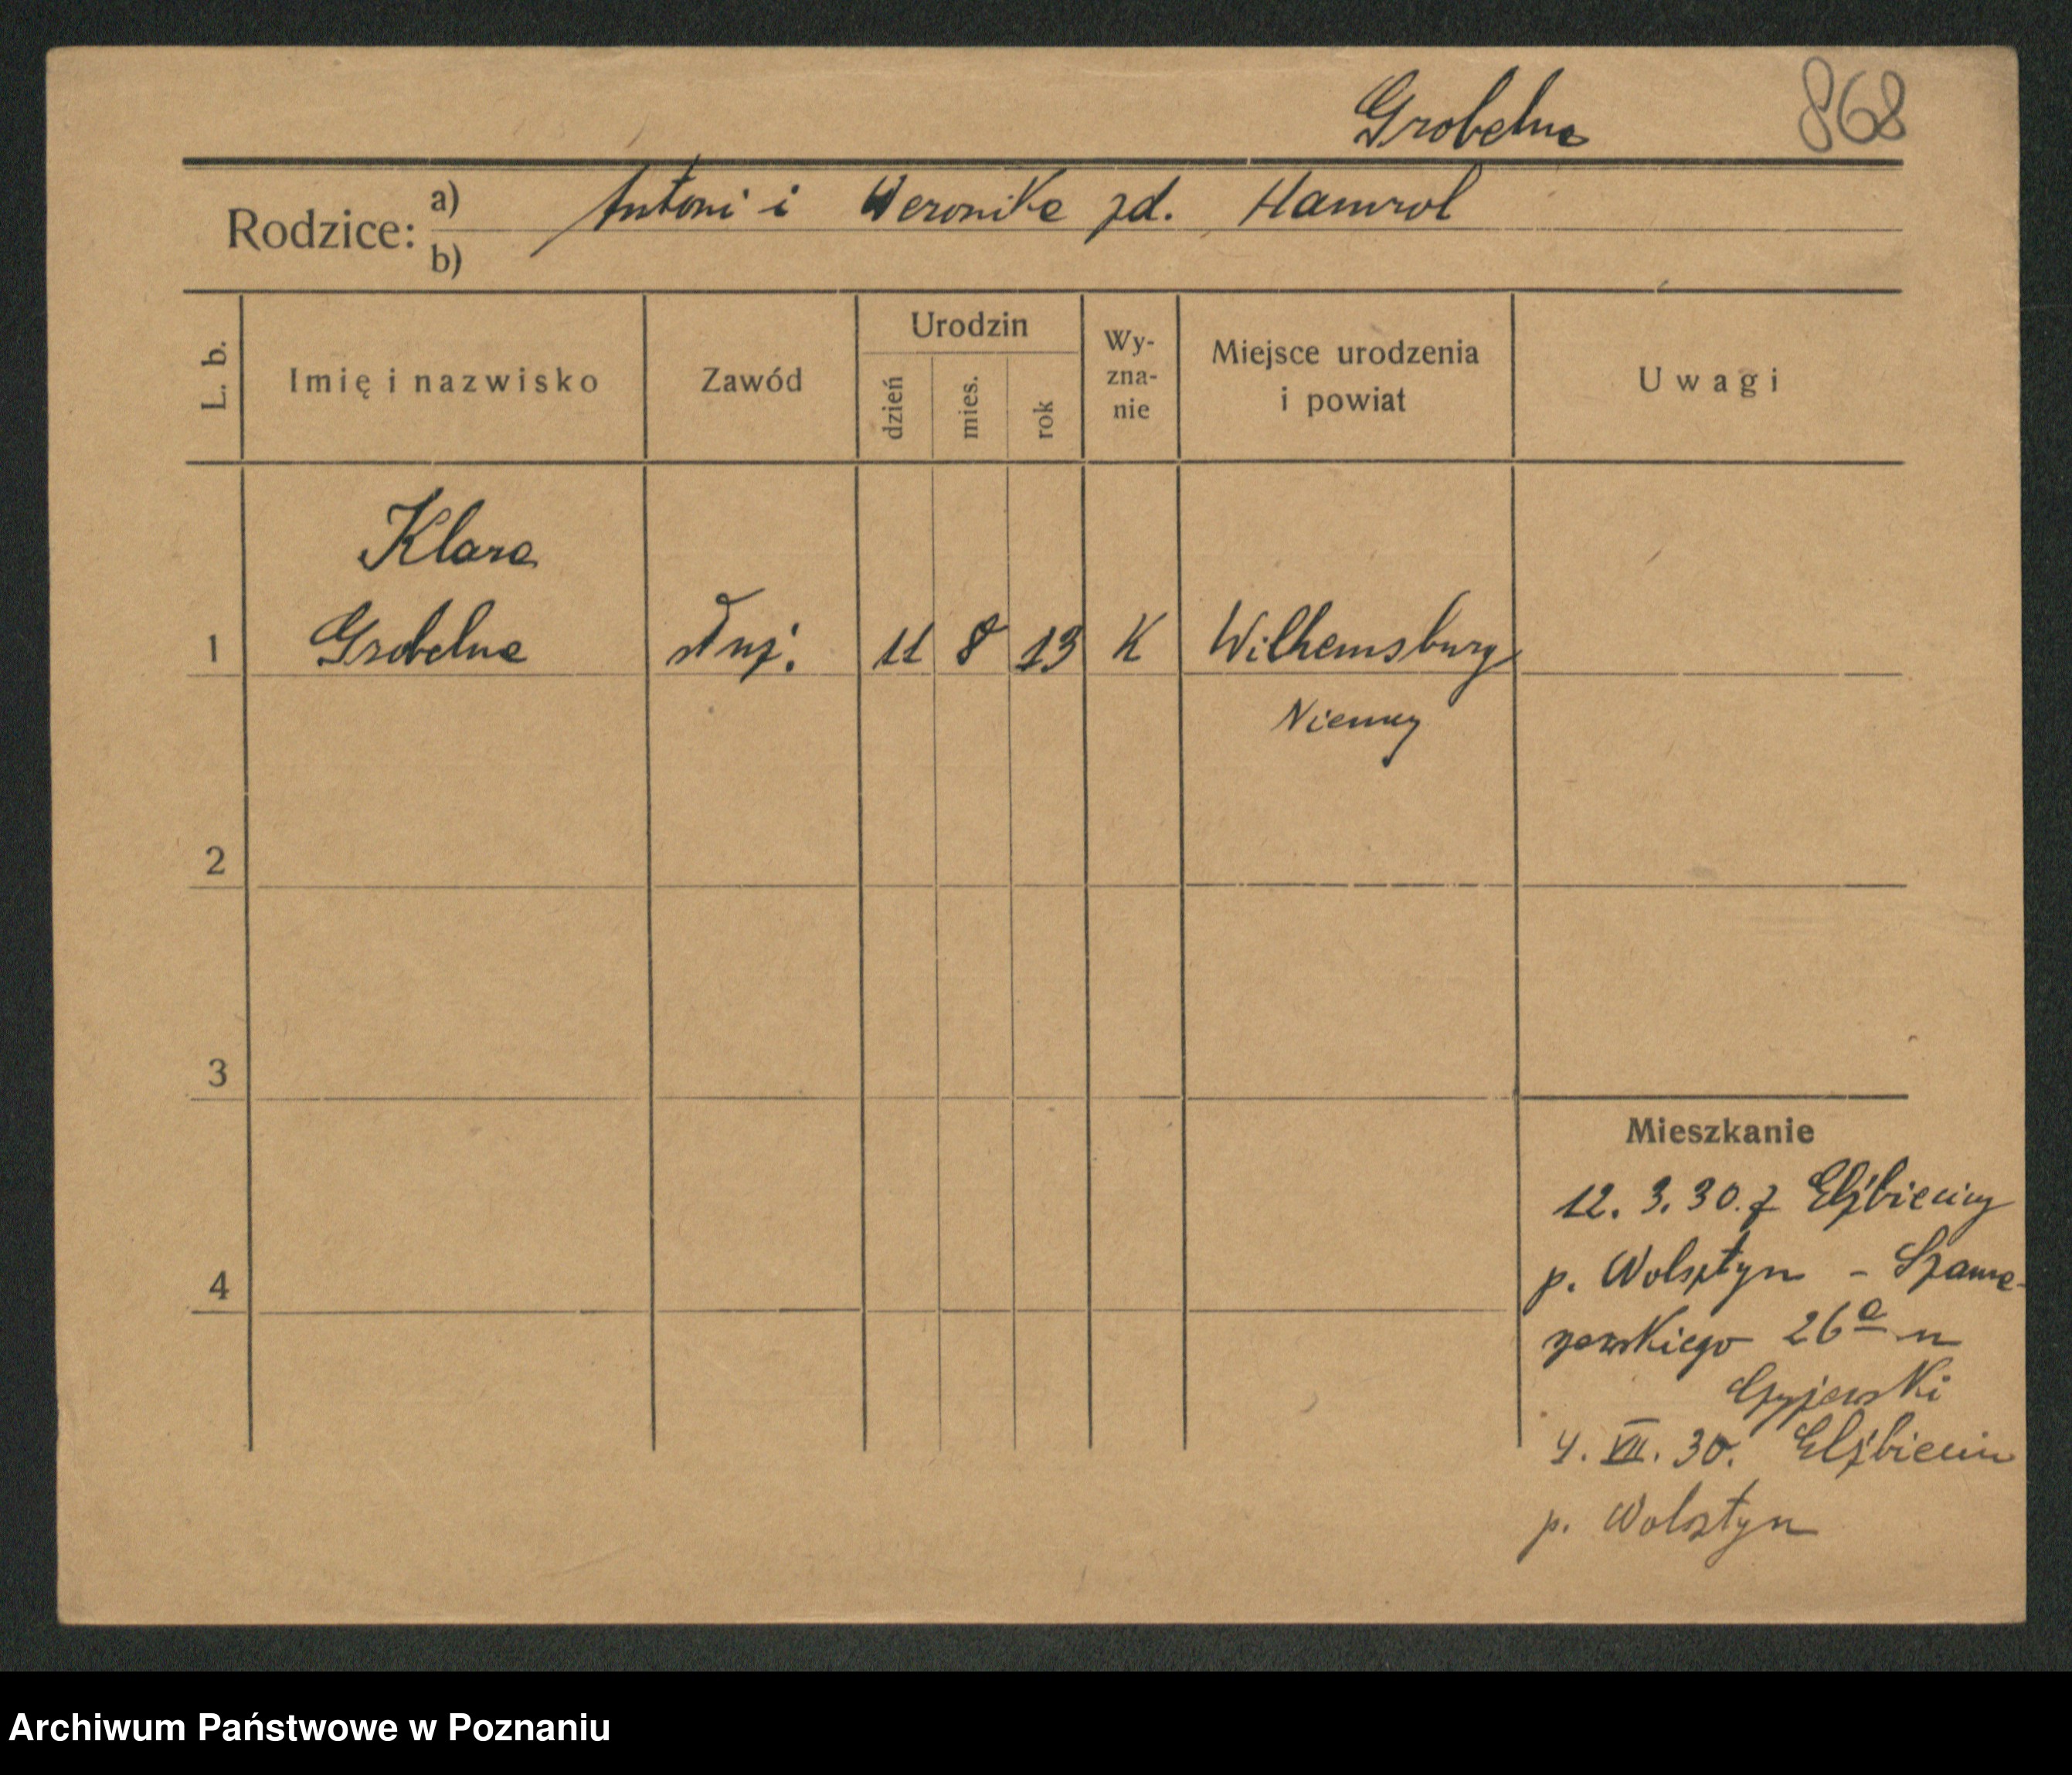 Grobelna
868
Rodzice: a) Antoni i Weronika zd. Hamrol
b)
L. b.
Imię i nazwisko
Zawód
Urodzin
dzień
mies.
rok
Wy-
zna-
nie
Miejsce urodzenia
i powiat
Uwagi
Klara
1 Grobelna służ. 11 8 13 K Wilhemsburg
Niemcy
2
3
4
Mieszkanie
12. 3. 30. z Elżbieciny
p. Wolsztyn - Szama-
rzewskiego 26a u
4. VII. 30. Elżbiecin
p. Wolsztyn
Archiwum Państwowe w Poznaniu